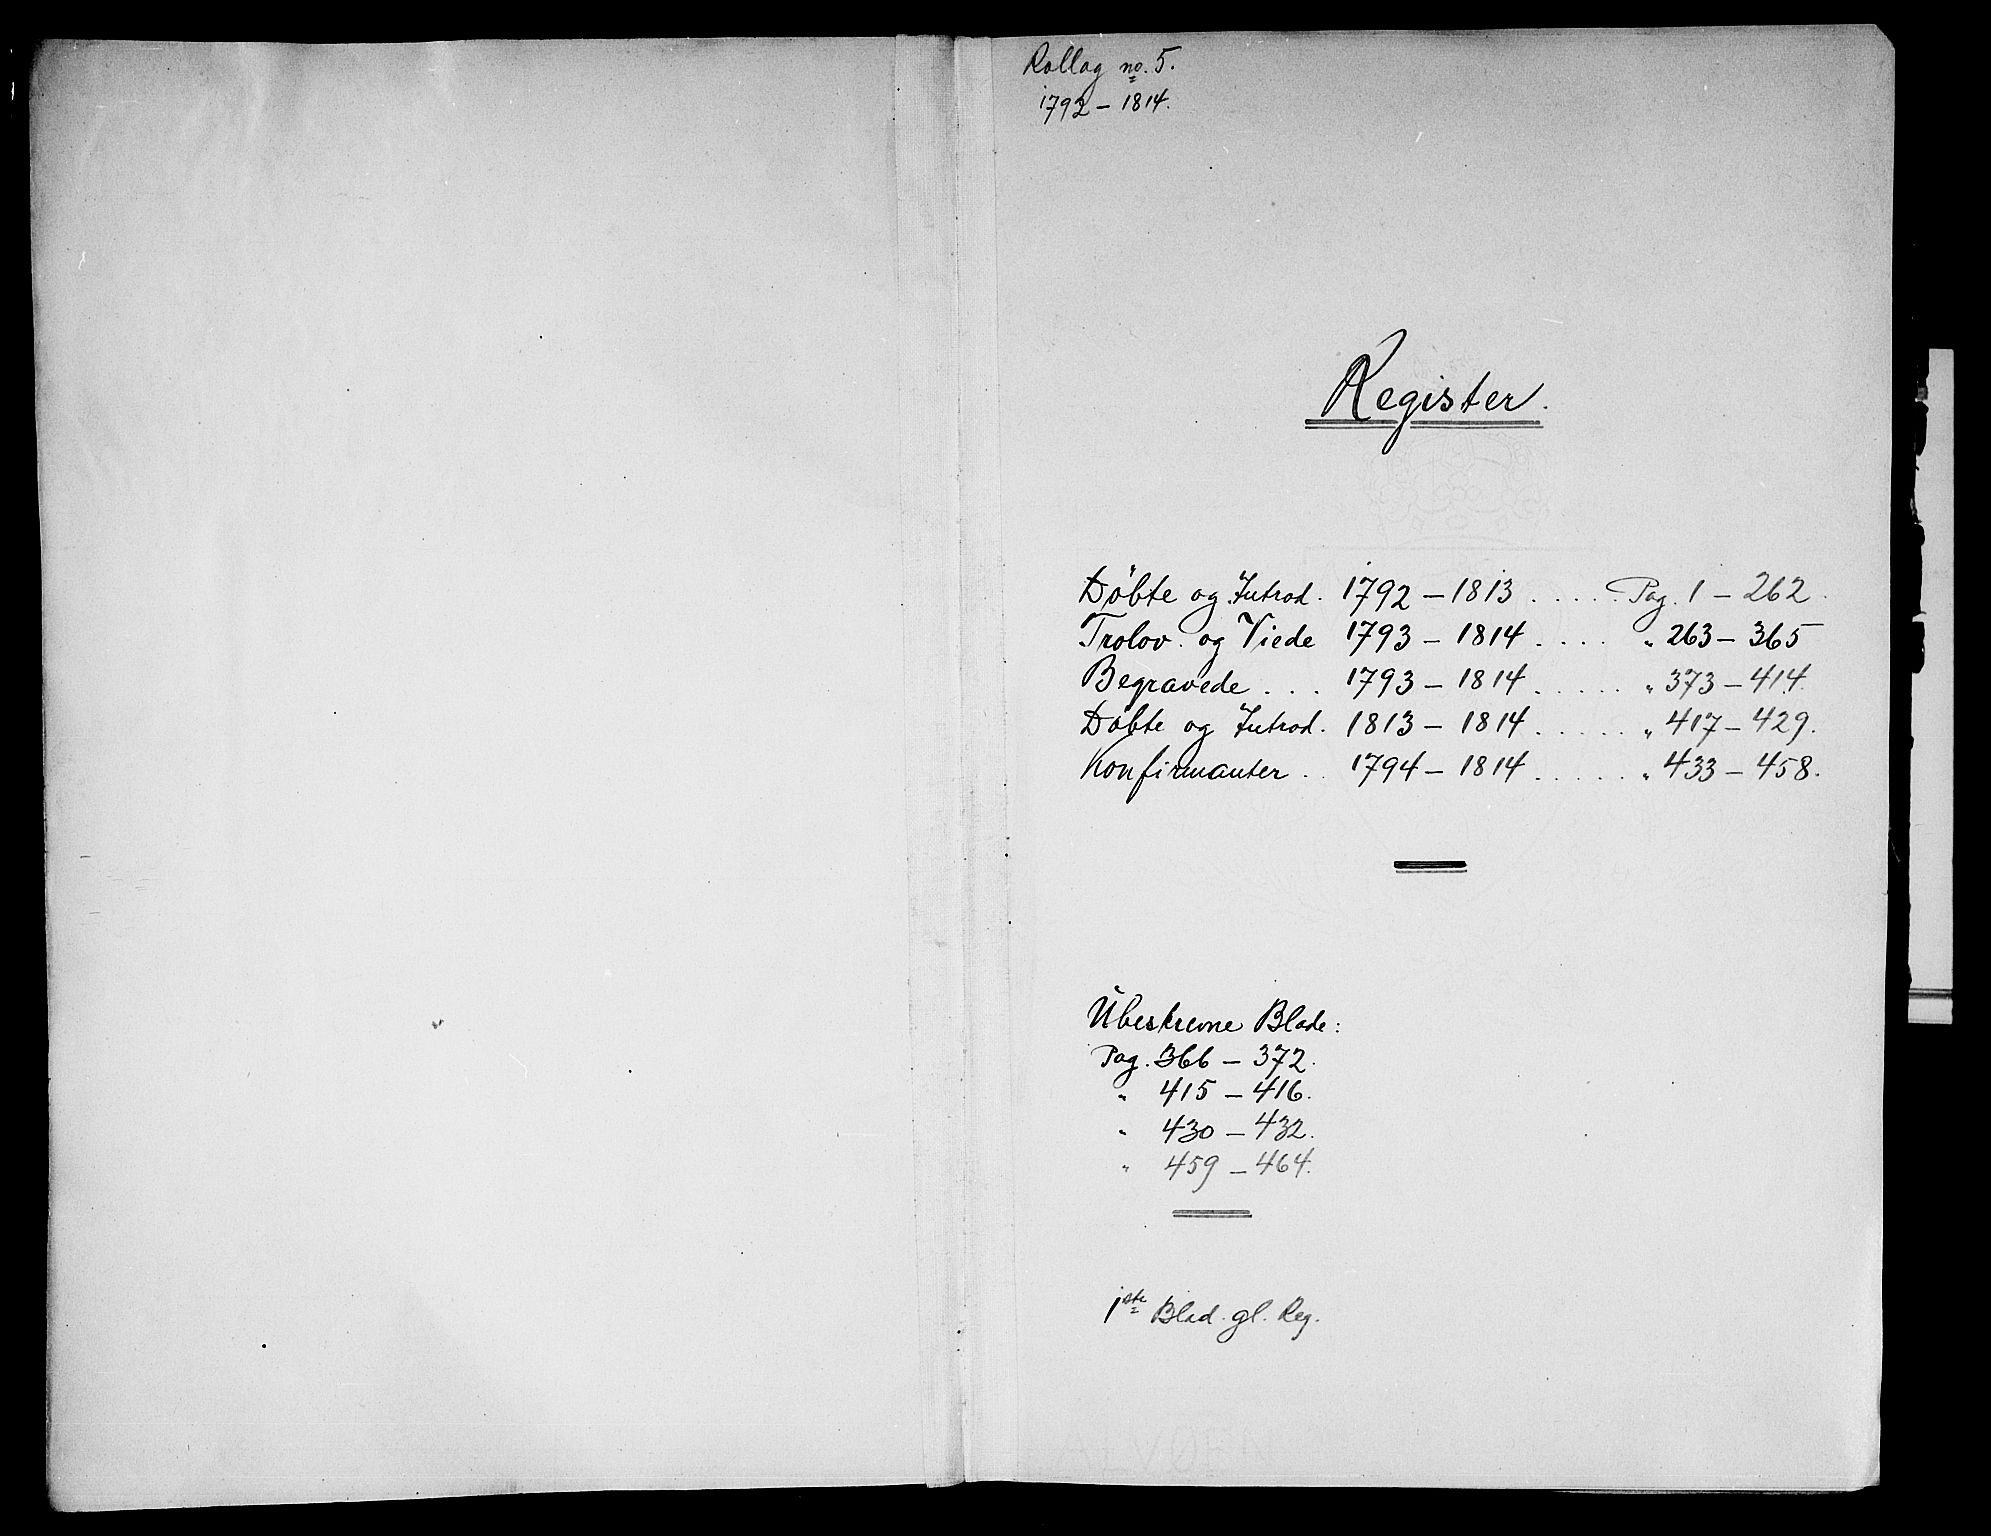 Rollag no. 5.
1792 – 1814.
Register.
Döbte og Introd. 1792 – 1813 . . . . . Pag. 1 – 262.
Trolov. og Viede 1793 – 1814 . . . . „ 263 – 365
Begravede . . . 1793 – 1814 . . . . . „ 373 – 414.
Döbte og Introd. 1813 – 1814 . . . . . „ 417 – 429.
Konfirmanter . . 1794 – 1814 . . . . . „ 433 – 458.
Ubeskrevne Blade:
Pag. 366 – 372.
„ 415 – 416.
„ 430 – 432.
„ 459 – 464.
1ste Blad. gl. Reg.
ALVØEN